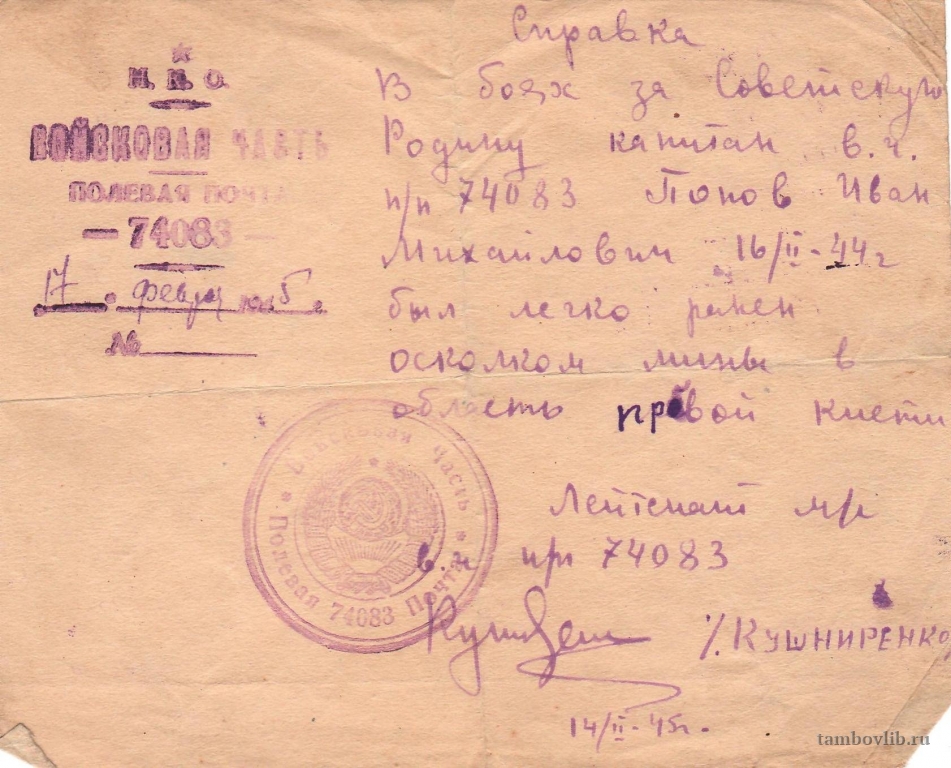 Н.К.О.
ВОЙСКОВАЯ ЧАСТЬ
ПОЛЕВАЯ ПОЧТА
— 74083 —
17 феврал 1945 г.
№
Справка
В боях за Советскую
Родину капитан в.ч.
п/п 74083 Попов Иван
Михайлович 16/II-44 г
был легко ранен
осколком мины в
область правой кисти
Лейтенант
в.ч п/п 74083
/КУШНИРЕНКО
14/II-45г.
Войсковая часть
Полевая 74083 Почта
tambovlib.ru